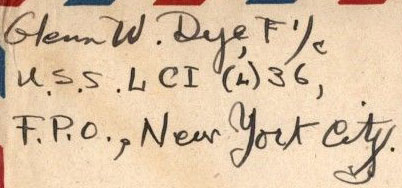 Glenn W. Dye, F 1/c
U.S.S. LCI (L) 36,
F.P.O., New York City.